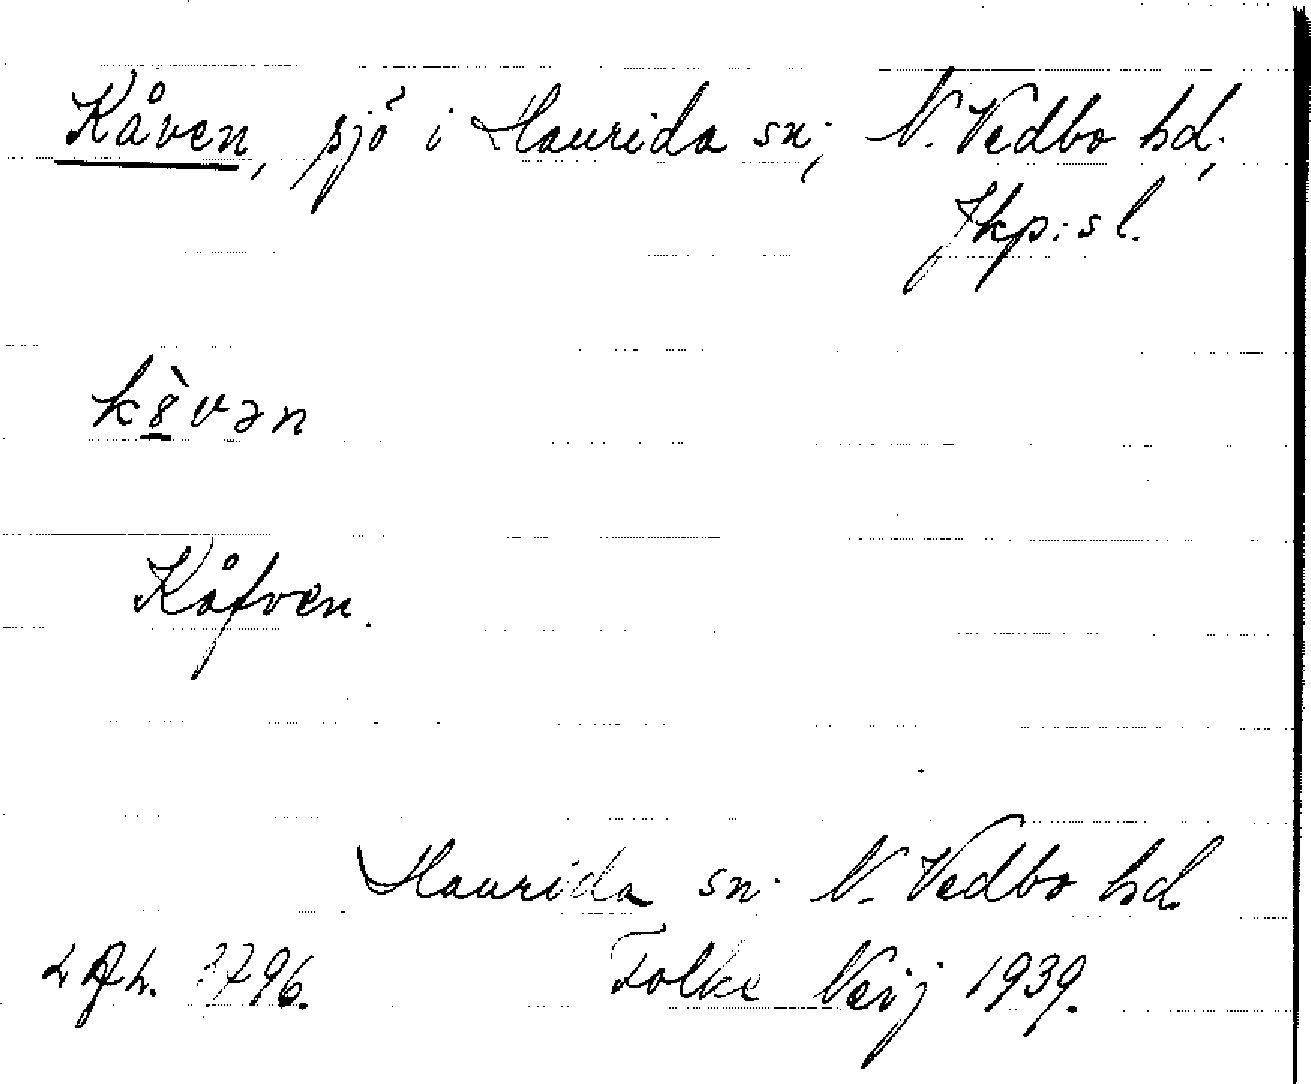 Kåven, sjö i Haurida sn; N. Vedbo hd;
Jkp:s l.
kȣ̀vən
Kåfven.
Haurida sn. N. Vedbo hd.
3796. Folke Neij 1939.